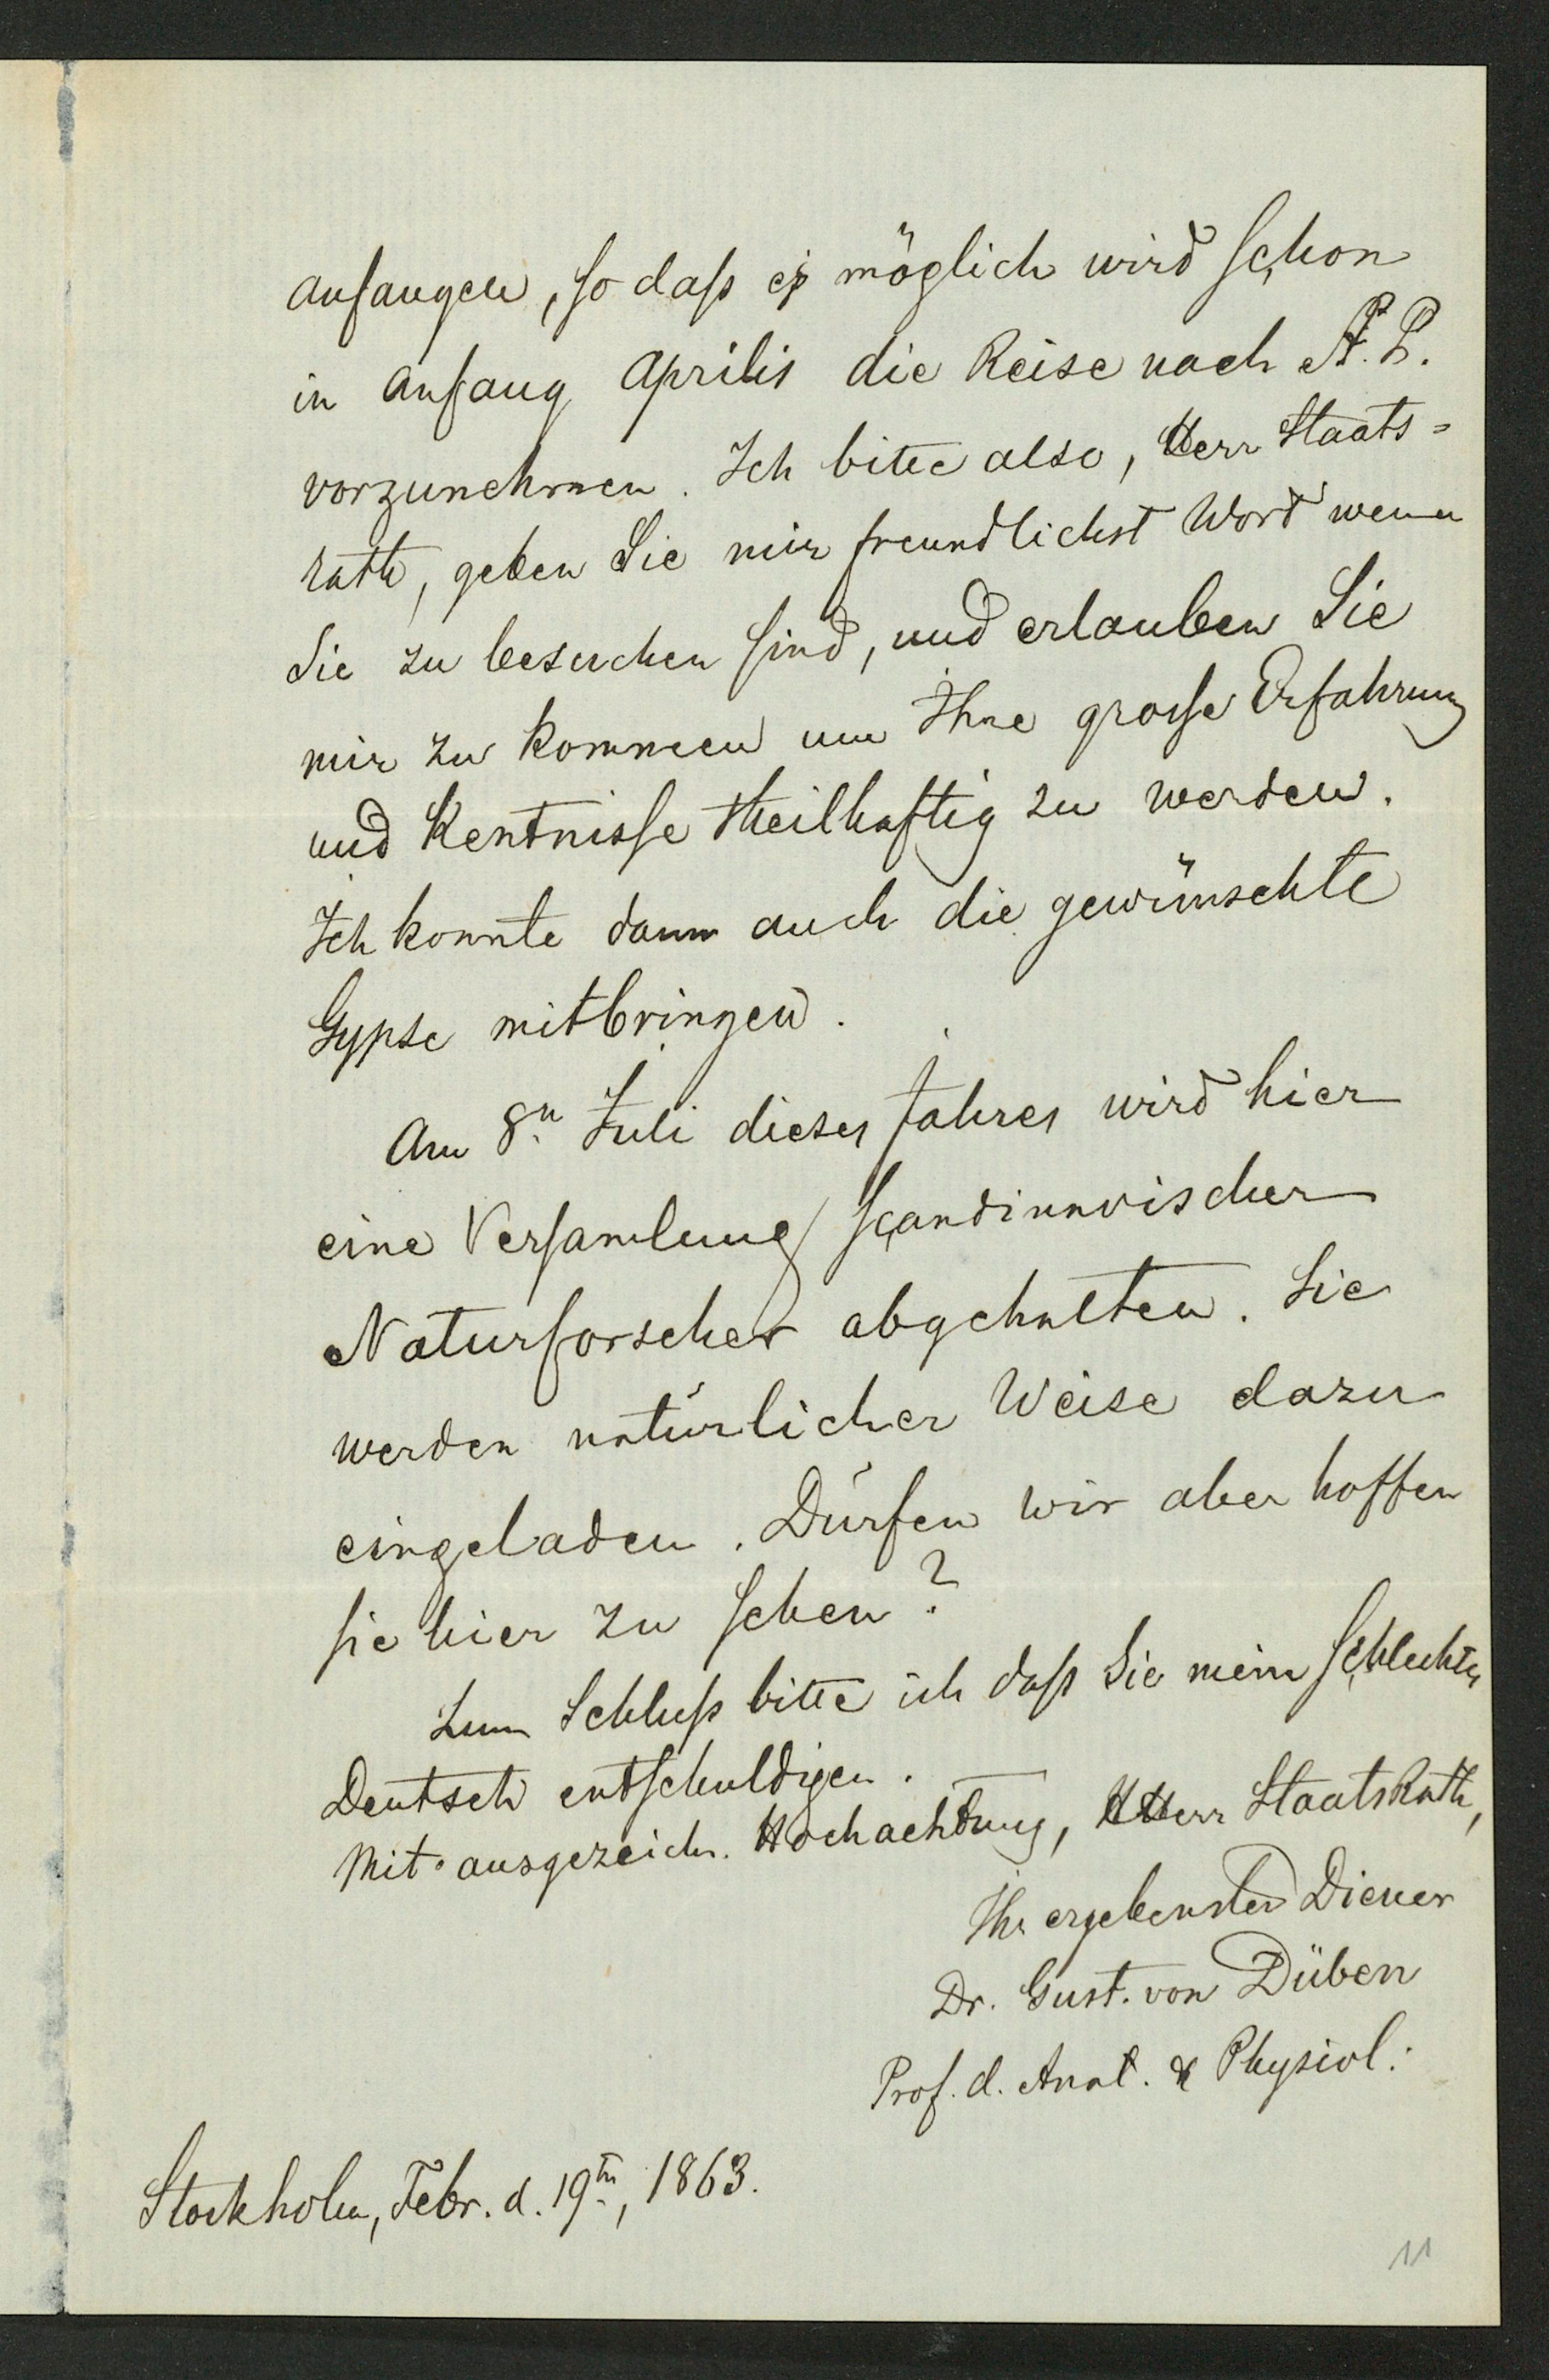 anfangen, so daß es möglich wird schon
in Anfang Aprilis die Reise nach St. P.
vorzunehmen. Ich bitte also, Herr Staats=
rath, geben Sie mir freundlichst Word wenn
Sie zu besuchen sind, und erlauben Sie
mir zu kommen um Ihre große Erfahrung
und Kentnisse theilhaftig zu werden.
Ich konnte dann auch die gewünschte
Gypse mitbringen.
Am 8n Juli dieses Jahres wird hier
eine Versamlung scandinavischer
Naturforscher abgehalten. Sie
werden natürlicher Weise dazu
eingeladen. Dürfen wir aber hoffen
sie hier zu sehen?
Zum Schluß bitte ich daß Sie mein schlechtes
Deutsch entschuldigen.
Mit ausgezeichn. Hochachtung, Herr StaatsRath,
Ihr ergebenster Diener
Dr. Gust. von Düben
Prof. d. Anat. & Physiol.
Stockholm, Febr. d. 19tn, 1863.
11